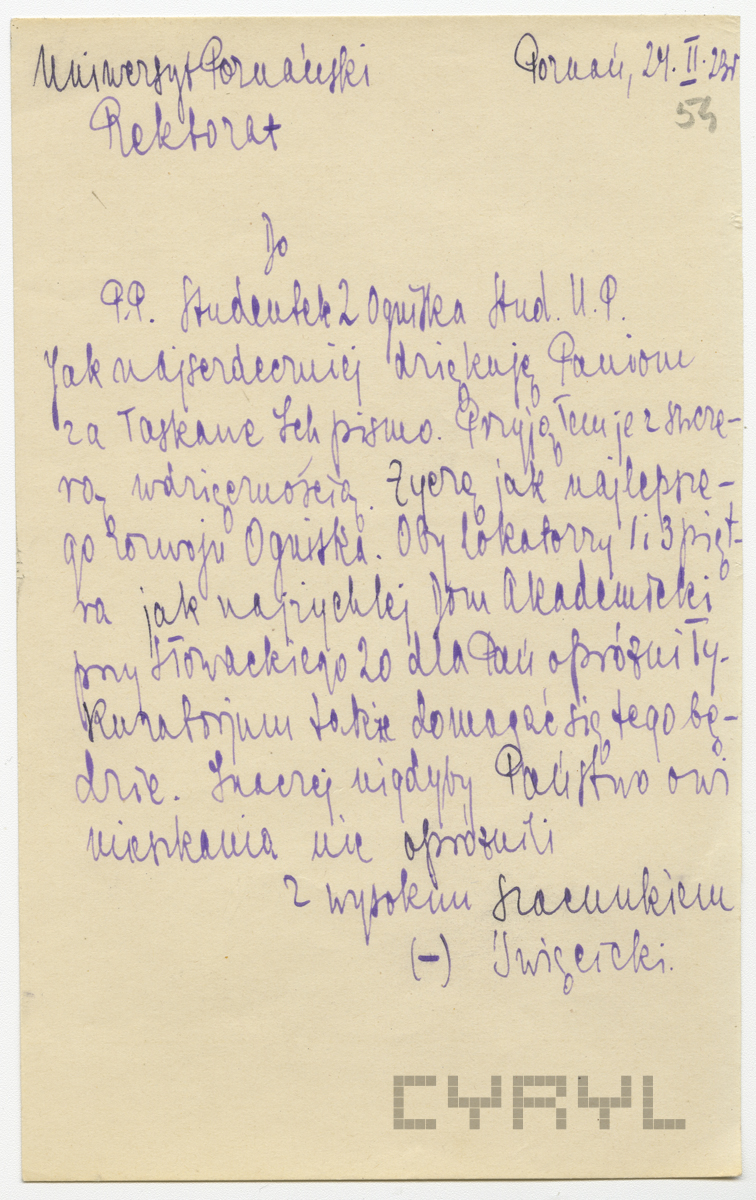 Uniwersyt Poznański Poznań, 24. II. 23r
54
Rektorat
Do
P.P. Studentek z Ogniska Stud. U. P.
Jak najserdeczniej dziękuję Paniom
za łaskawe Ich pismo. Przyjąłem je z szcze-
rą wdzięcznością. Życzę jak najlepsze-
go rozwoju Ogniska. Oby lokatorzy 1 i 3 pięt-
ra jak najrychlej Dom Akademicki
przy Słowackiego 20 dla Pań opróżniły.
Kuratorjum także domagać się tego bę-
dzie. Inaczej nigdyby Państwo owi
mieszkania nie opróżnili
Z wysokim szacunkiem
(-) Święcicki.
CYRYL